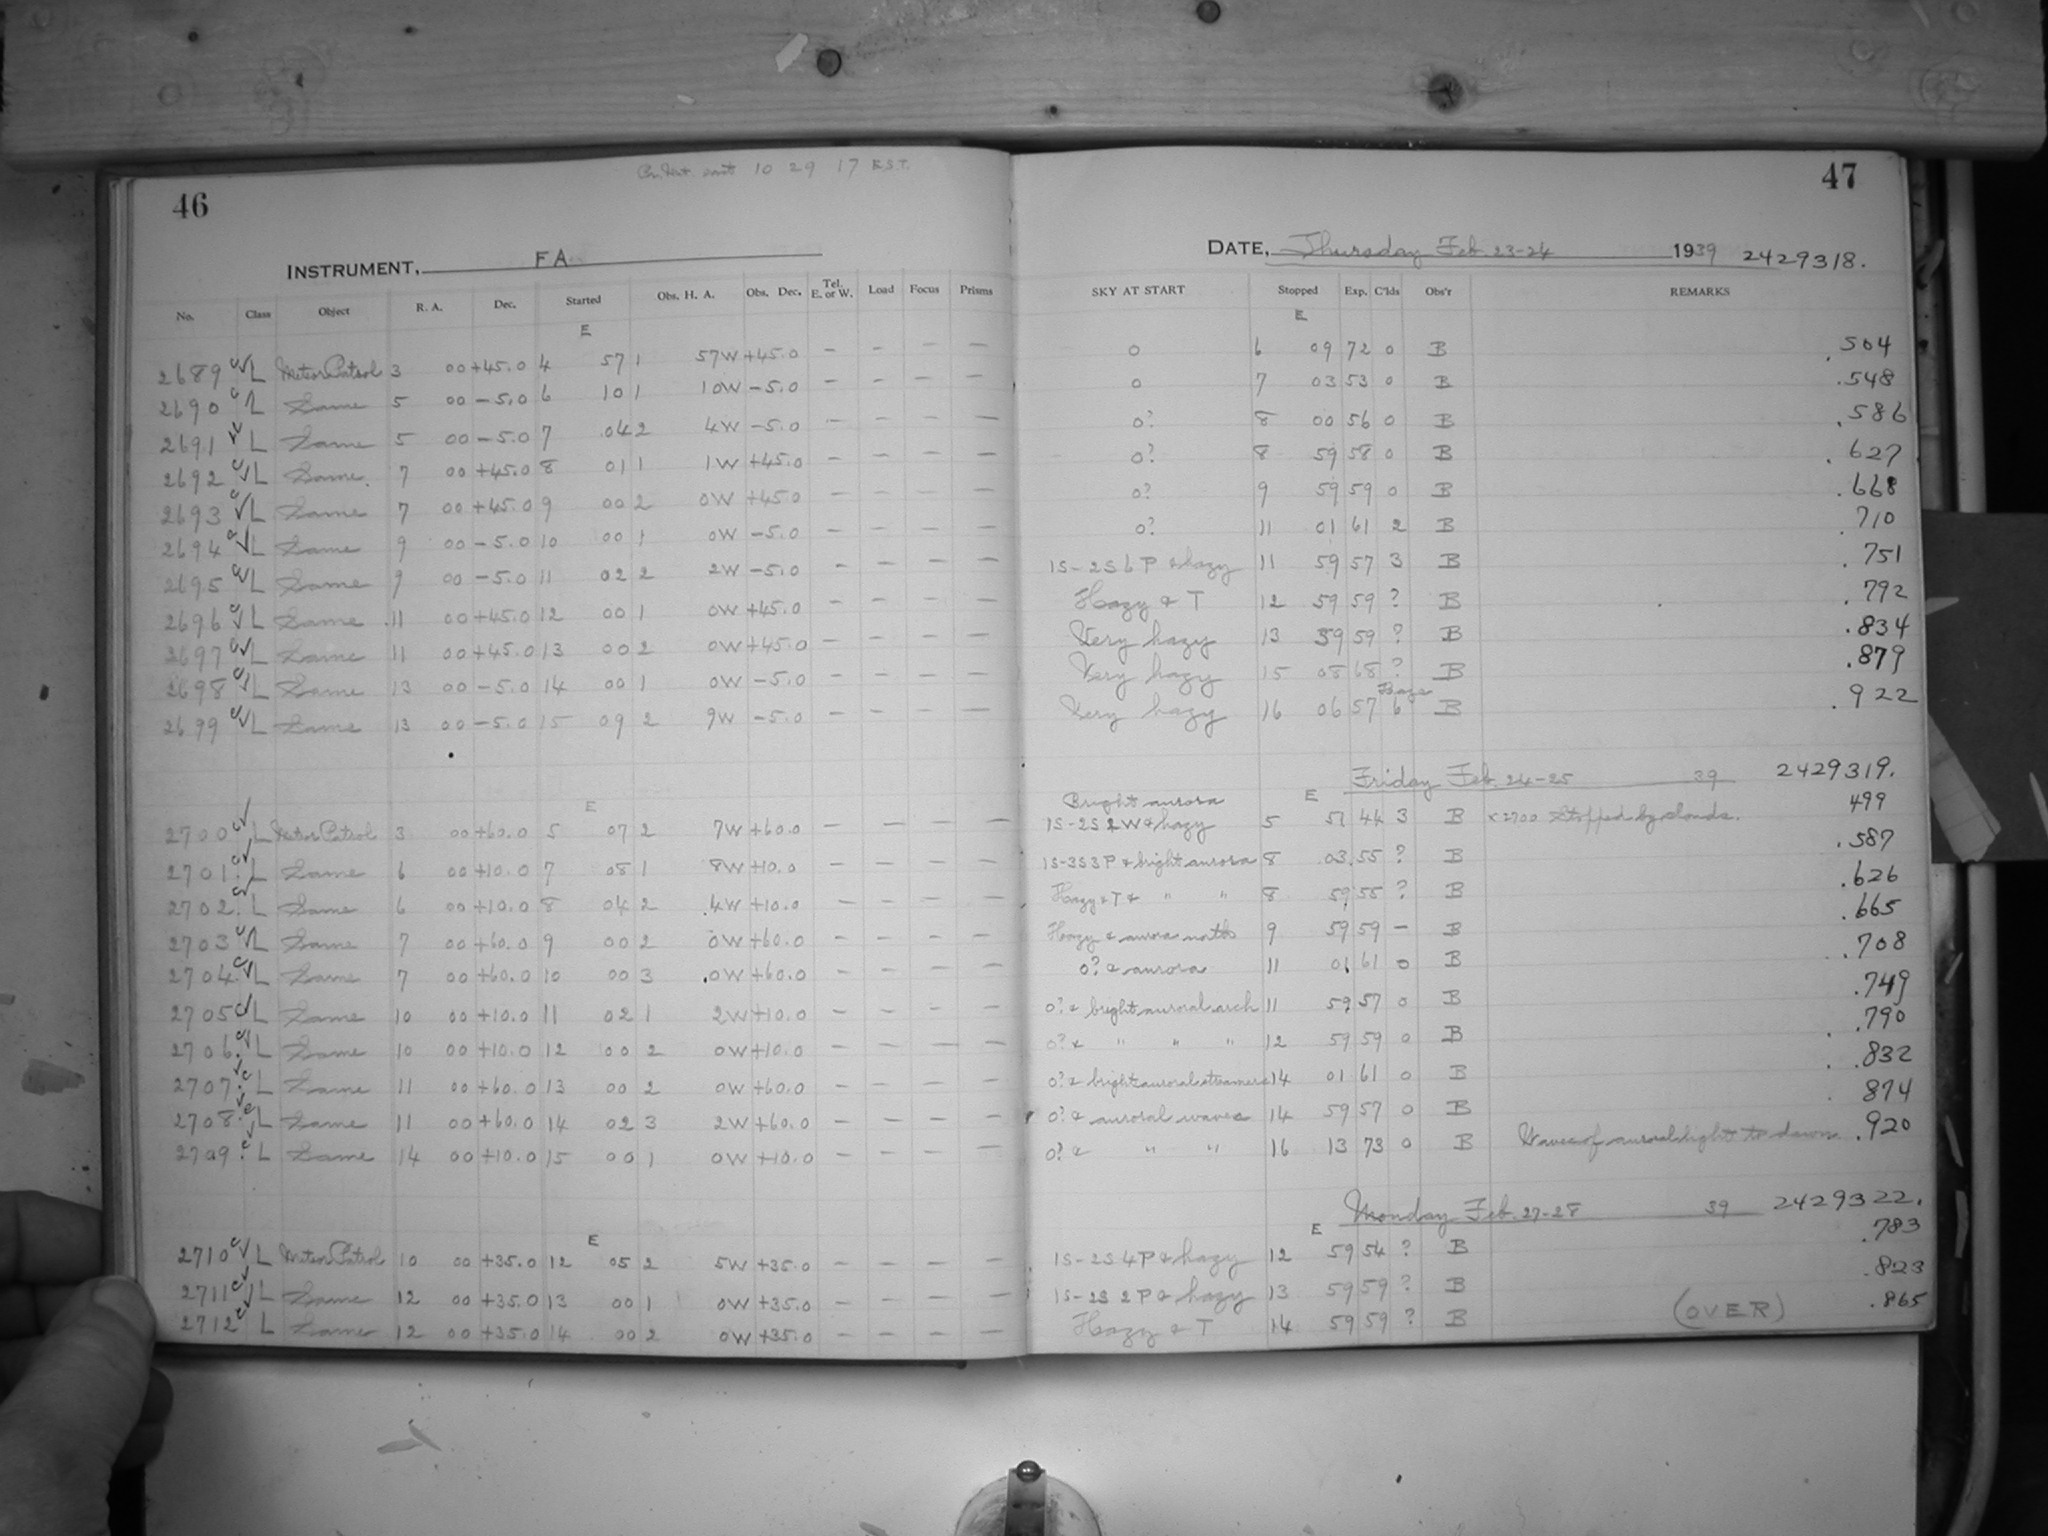 46
10 29 17 E.S.T.
INSTRUMENT, FA
No. Class Object R. A. Dec. Started Obs. H. A. Obs. Dec. Tel. E. or W. Load Focus Prisms
E
2689 L Meteor Patrol 3 00 +45.0 4 57 1 57W +45.0 - - - -
2690 L Same 5 00 -5.0 6 10 1 10W -5.0 - - - -
2691 L Same 5 00 -5.0 7 04 2 4W -5.0 - - - -
2692 L Same 7 00 +45.0 8 01 1 1W +45.0 - - - -
2693 L Same 7 00 +45.0 9 00 2 0W +45.0 - - - -
2694 L Same 9 00 -5.0 10 00 1 0W -5.0 - - - -
2695 L Same 9 00 -5.0 11 02 2 2W -5.0 - - - -
2696 L Same 11 00 +45.0 12 00 1 0W +45.0 - - - -
2697 L Same 11 00 +45.0 13 00 2 0W +45.0 - - - -
2698 L Same 13 00 -5.0 14 00 1 0W -5.0 - - - -
2699 L Same 13 00 -5.0 15 09 2 9W -5.0 - - - -
E
2700 L Meteor Patrol 3 00 +60.0 5 07 2 7W +60.0 - - - -
2701 L Same 6 00 +10.0 7 08 1 8W +10.0 - - - -
2702 L Same 6 00 +10.0 8 04 2 4W +10.0 - - - -
2703 L Same 7 00 +60.0 9 00 2 0W +60.0 - - - -
2704 L Same 7 00 +60.0 10 00 3 0W +60.0 - - - -
2705 L Same 10 00 +10.0 11 02 1 2W +10.0 - - - -
2706 L Same 10 00 +10.0 12 00 2 0W +10.0 - - - -
2707 L Same 11 00 +60.0 13 00 2 0W +60.0 - - - -
2708 L Same 11 00 +60.0 14 02 3 2W +60.0 - - - -
2709 L Same 14 00 +10.0 15 00 1 0W +10.0 - - - -
E
2710 L Meteor Patrol 10 00 +35.0 12 05 2 5W +35.0 - - - -
2711 L Same 12 00 +35.0 13 00 1 0W +35.0 - - - -
2712 L Same 12 00 +35.0 14 00 2 0W +35.0 - - - -
47
DATE, Thursday Feb. 23-24 1939 2429318.
SKY AT START Stopped Exp. C'lds Obs'r REMARKS
E
0 6 09 72 0 B .504
0 7 03 53 0 B .548
0? 8 00 56 0 B .586
0? 8 59 58 0 B .627
0? 9 59 59 0 B .668
0? 11 01 61 2 B .710
1S-2S 6P & hazy 11 59 57 3 B .751
Hazy & T 12 59 59 ? B .792
Very hazy 13 59 59 ? B .834
Very hazy 15 08 68 ? B .879
Haze
Very hazy 16 06 57 6 B .922
Friday Feb. 24-25 39 2429319.
Bright aurora E
1S-2S 2W & hazy 5 51 44 3 B x 2700 Stopped by clouds. 499
1S-3S 3P & bright aurora 8 03 55 ? B .587
Hazy & T & " " 8 59 55 ? B .626
Hazy & aurora north 9 59 59 - B .665
0? & aurora 11 01 61 0 B .708
0? & bright auroral arch 11 59 57 0 B .749
0? & " " " 12 59 59 0 B .790
0? & bright auroral streamers 14 01 61 0 B .832
0? & auroral waves 14 59 57 0 B 874
0? & " " 16 13 73 0 B Waves of auroral light to dawn .920
Monday Feb. 27-28 39 2429322.
E
1S-2S 4P & hazy 12 59 54 ? B .783
1S-2S 2P & hazy 13 59 59 ? B .823
Hazy & T 14 59 59 ? B (OVER) .865